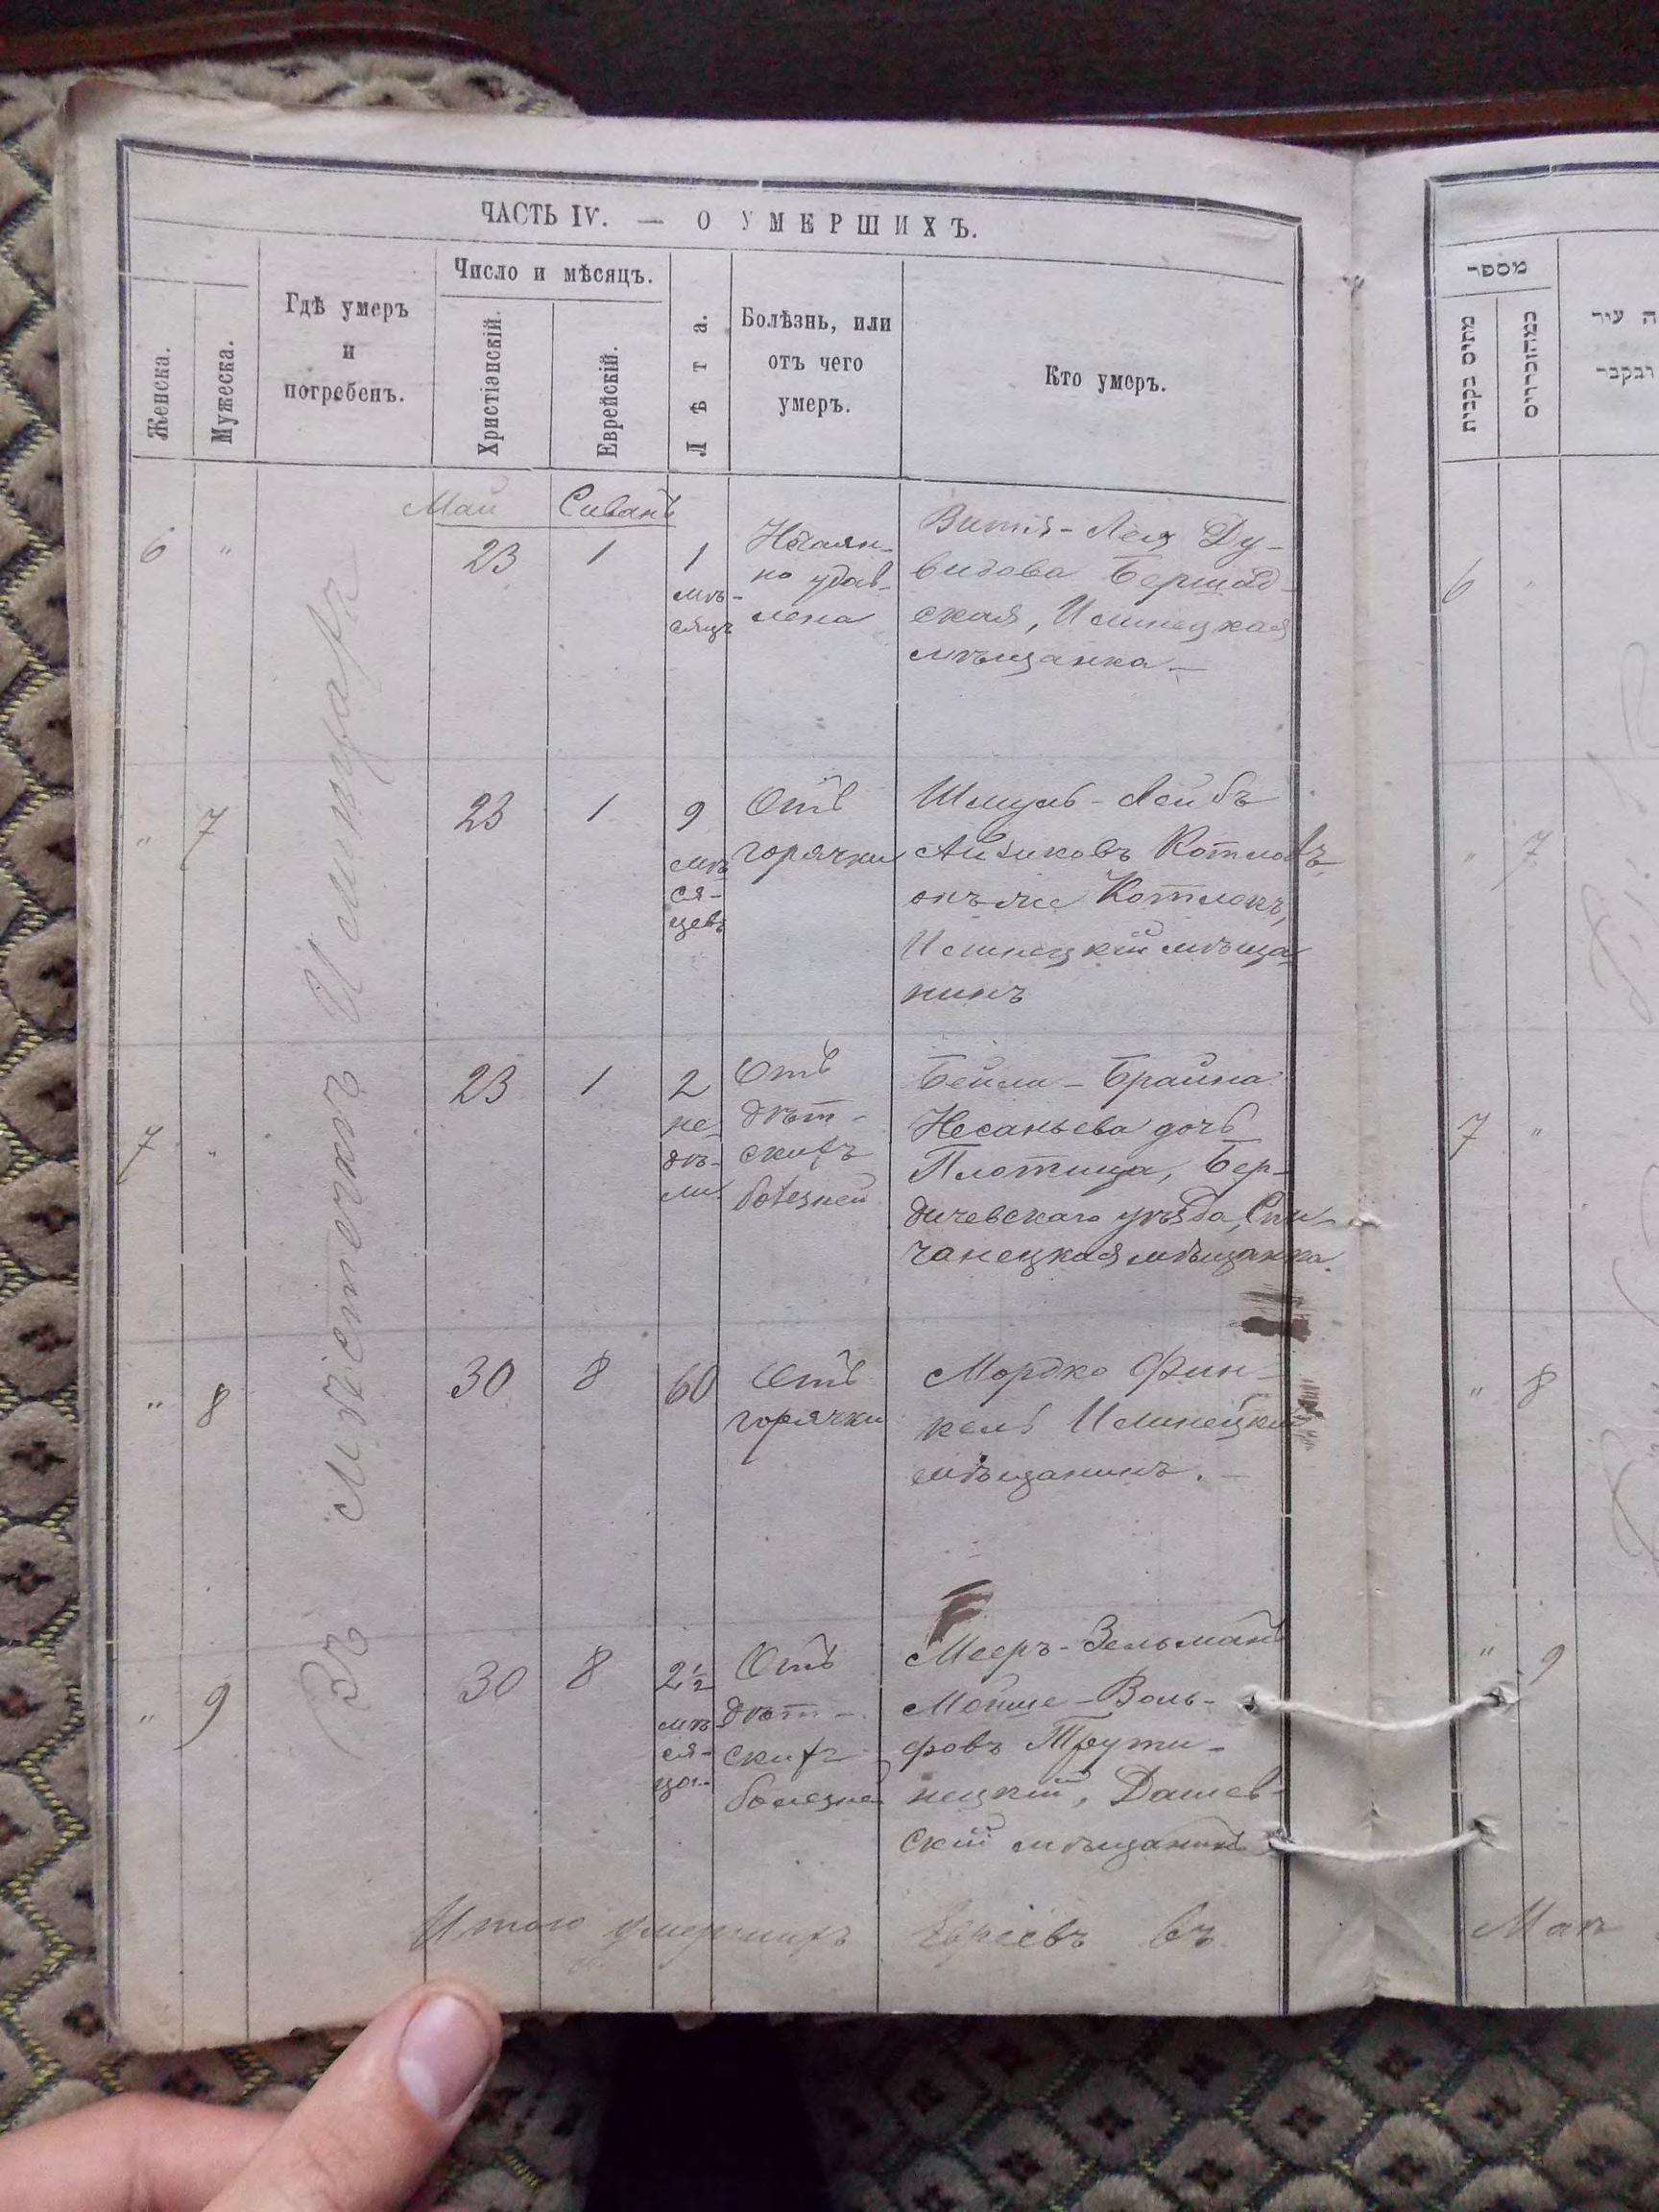 ЧАСТЬ IV. — О УМЕРШИХЪ.
Женска.
Мужеска.
Гдѣ умеръ
и
погребенъ.
Число и мѣсяцъ.
Христіанскій.
Еврейскій.
Лѣта.
Болѣзнь, или
отъ чего
умеръ.
Кто умеръ.
Въ мѣстечкѣ
Май Сиванъ
6 " 23 1 1
мѣ-
сяцъ
Нечаян-
но удав-
лена
-Лея Ду-
видова Бершад-
ская, Илинецкая
мѣщанка —
" 7 23 1 9
мѣ
ся-
цевъ
Отъ
горячки
Шмуль-Лейбъ
Айзиковъ Котловъ,
онъ же Котлокъ,
Илинецкій мѣща-
нинъ
7 " 23 1 2
не-
дѣ-
ли
Отъ
дѣт-
скихъ
болезней
Бейла-Брайна
Несаньева дочь
Плотица, Бер-
дичевскаго уѣзда, Спи-
чанецкая мѣщанка.
" 8 30 8 60
Отъ
горячки
Мордко Фин-
кель Илинецкій
мѣщанинъ. —
" 9 30 8 2½
мѣ-
ся-
Отъ
дѣт-
скихъ
болезней
Мееръ-Зельманъ
Мойше-Воль-
фовъ Трути-
нецкій, Дашев-
скій мѣщанинъ
Итого умершихъ Евреевъ въ
מספר
6 "
" 7
7 "
" 8
" 9
Маѣ